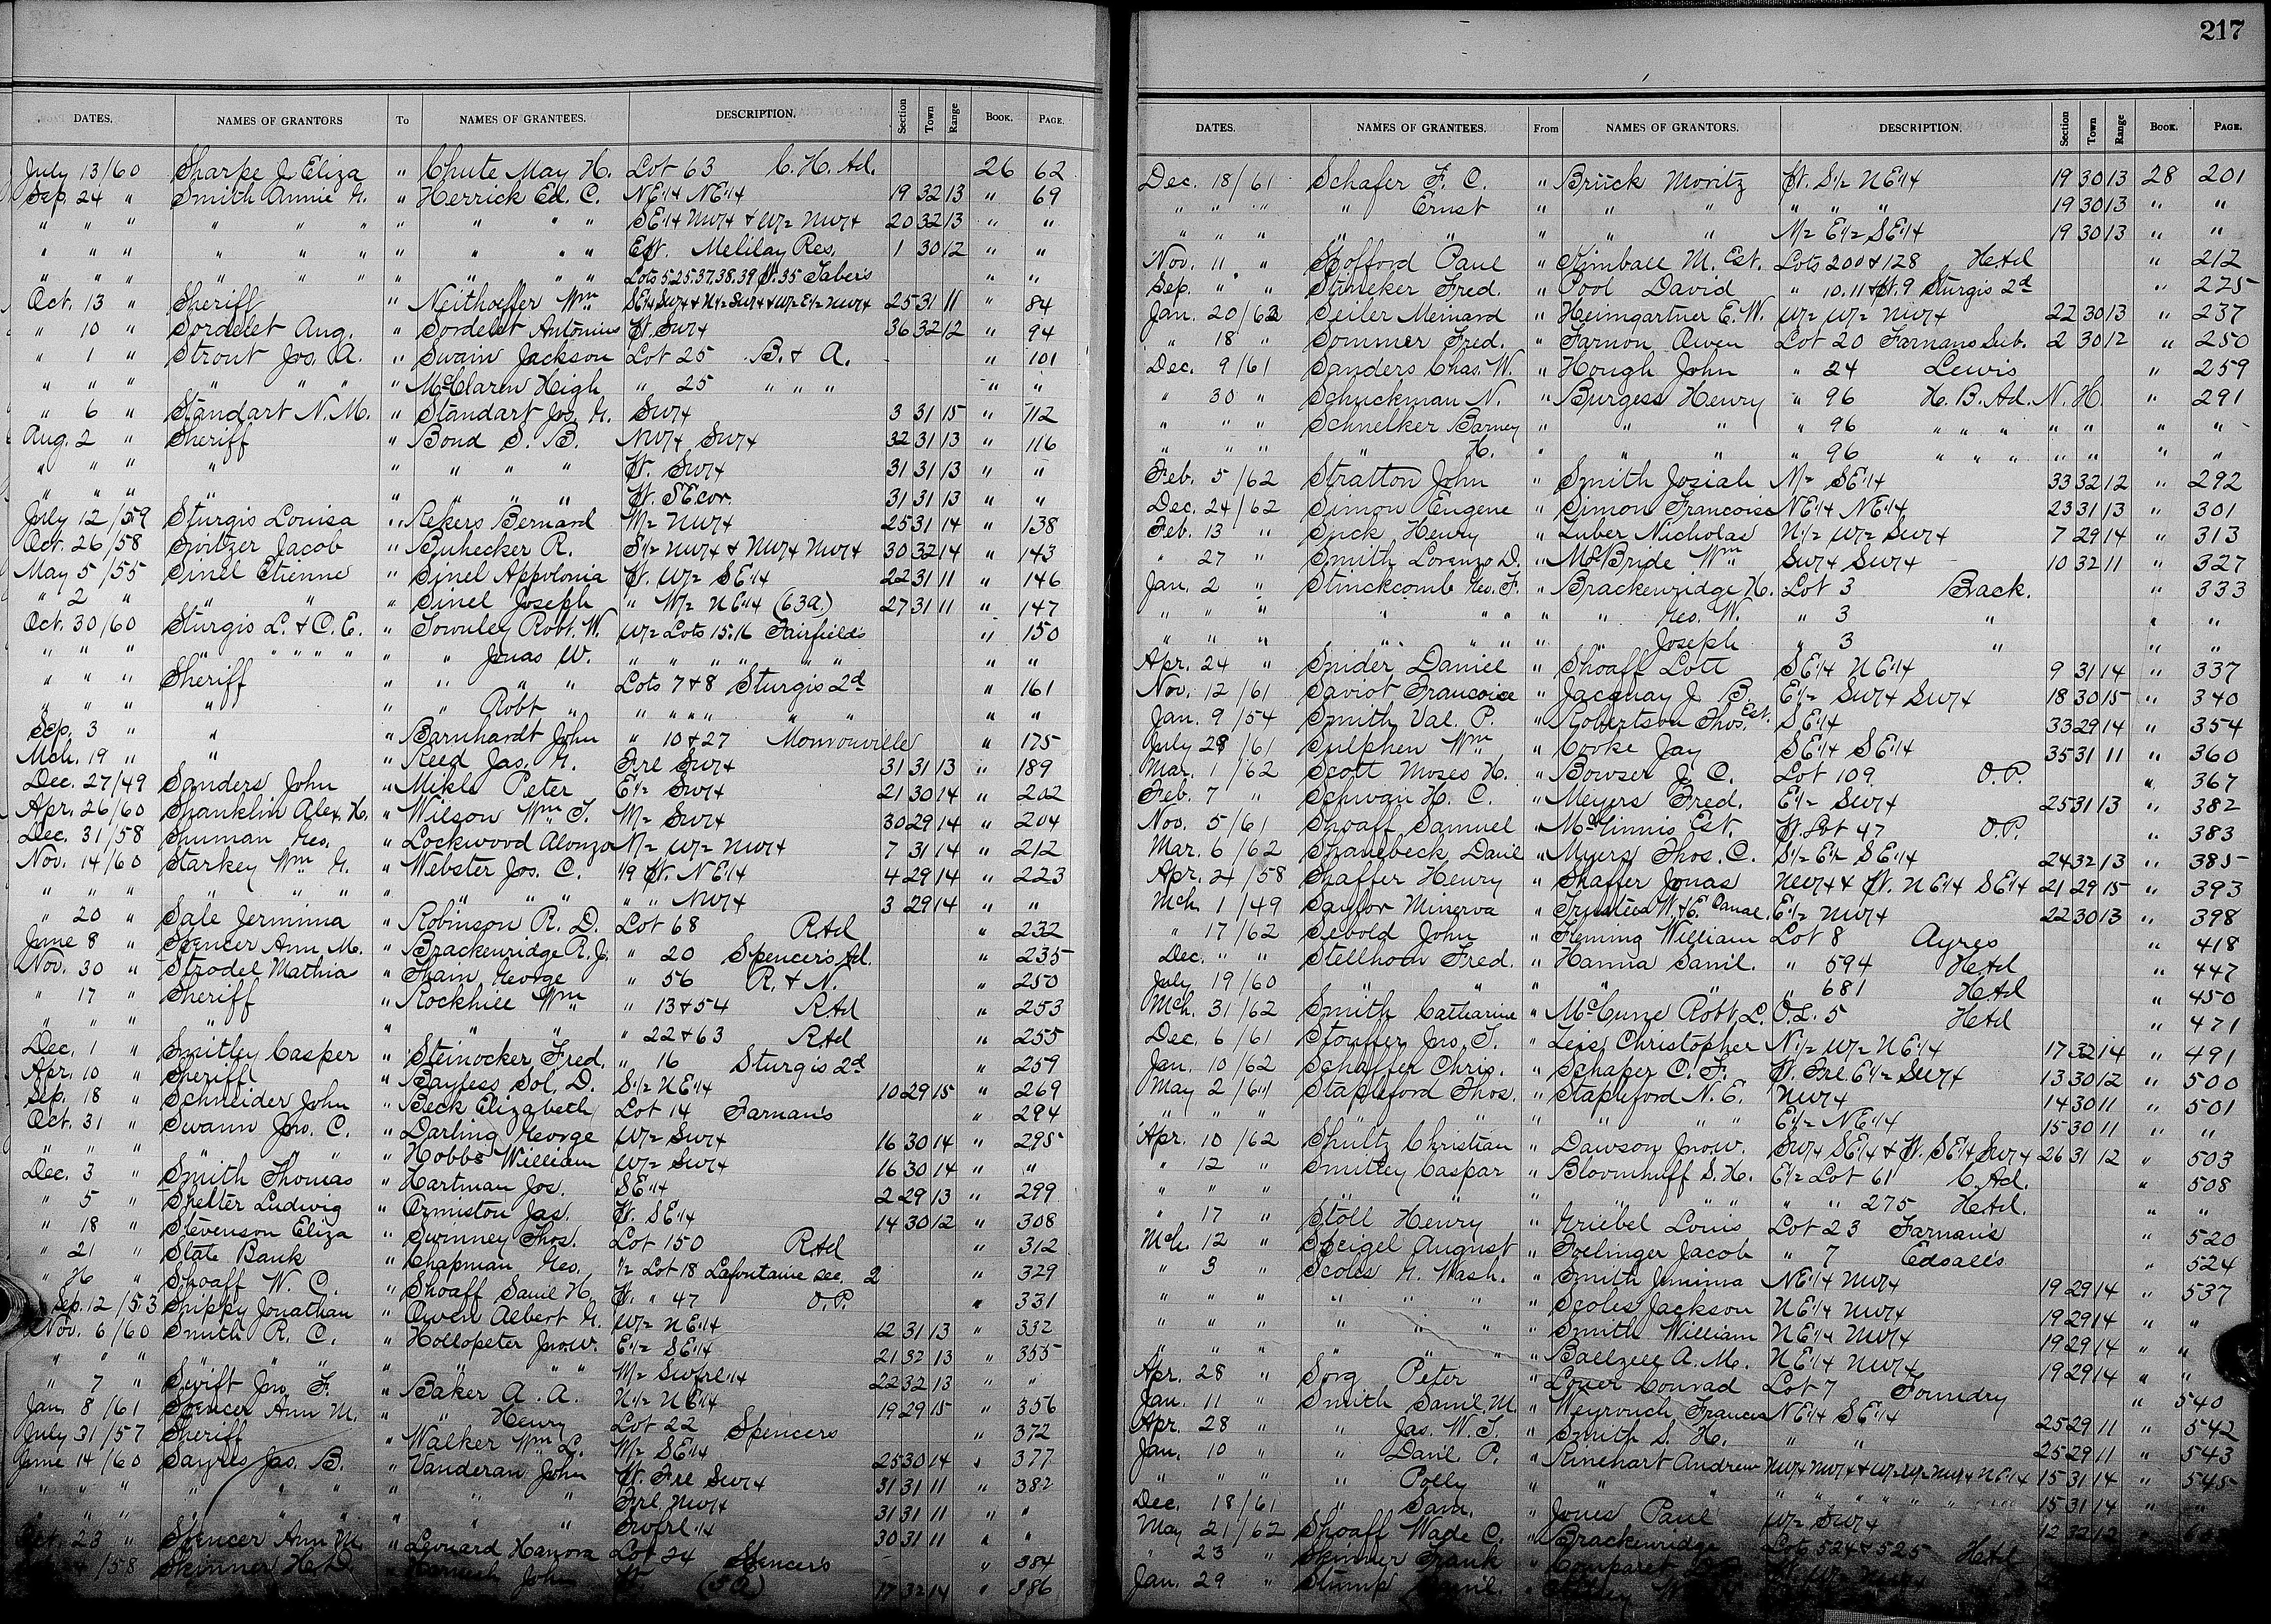 217
DATES. NAMES OF GRANTORS To NAMES OF GRANTEES. DESCRIPTION. Section Town Range Book. PAGE.
July 13/60 Sharpe J. Eliza " Chute May H. Lot 63 C. H. Ad. 26 62
Sep. 24 " Smith Annie G. " Herrick Ed. C. NE1/4 NE1/4 19 32 13 " 69
" " " " " " " " " " SE1/4 NW1/4 & W1/2 NW1/4 20 32 13 " "
" " " " " " " " " " Pt. Res. 1 30 12 " "
" " " " " " " " " " Lots 5.25.37.38.39 Pt. 35 Taber's " "
Oct. 13 " Sheriff " Neithoeffer Wm SE1/4 SW1/4 & N1/2 SW1/4 & W1/2 E1/2 NW1/4 25 31 11 " 84
" 10 " Sordelet Aug. " Sordelet Antonius Pt. SW1/4 36 32 12 " 94
" 1 " Strout Jos. A. " Swain Jackson Lot 25 B. & A. " 101
" " " " " " " McClaren Heigh " 25 " " " " "
" 6 " Standart N. M. " Standart Jos. G. SW1/4 3 31 15 " 112
Aug. 2 " Sheriff " Bond S. B. NW1/4 SW1/4 32 31 13 " 116
" " " " " " " " Pt. SW1/4 31 31 13 " "
" " " " " " " " Pt. SE cor. 31 31 13 " "
July 12/59 Sturgis Louisa " Rekers Bernard N1/2 NW1/4 25 31 14 " 138
Oct. 26/58 Switzer Jacob " Buhecker R. S1/2 NW1/4 & NW1/4 NW1/4 30 32 14 " 143
May 5/55 Sinel Etienne " Sinel Appolonia Pt. W1/2 SE1/4 22 31 11 " 146
" 2 " " " " Sinel Joseph " W1/2 NE1/4 (63a.) 27 31 11 " 147
Oct. 30/60 Sturgis L. & C. E. " Townley Robt. W. W1/2 Lots 15.16 Fairfields " 150
" " " " " " " " " Jonas W. " " " " " " " "
" " " Sheriff " " " " Lots 7 & 8 Sturgis 2d " 161
" " " " " " Robt " " " " " " " " "
Sep. 3 " " " Barnhardt John " 10 & 27 Monroeville " 175
Mch. 19 " " " Reed Jas. G. Frl SW1/4 31 31 13 " 189
Dec. 27/49 Sanders John " Mikls Peter E1/2 SW1/4 21 30 14 " 202
Apr. 26/60 Shanklin Alex. H. " Wilson Wm. T. N1/2 SW1/4 30 29 14 " 204
Dec. 31/58 Shuman Geo. " Lockwood Alonzo N1/2 W1/2 NW1/4 7 31 14 " 212
Nov. 14/60 Starkey Wm. G. " Webster Jos. C. 1/9 Pt. NE1/4 4 29 14 " 223
" " " " " " " " " " " " NW1/4 3 29 14 " "
" 20 " Sale Jermima " Robinson R. D. Lot 68 RAd " 232
June 8 " Spencer Ann M. " Brackenridge R. J. " 20 Spencer's Ad. " 235
Nov. 30 " Strodel Mathia " Thain George " 56 R. & N. " 250
" 17 " Sheriff " Rockhill Wm " 13 & 54 RAd " 253
" " " " " " " " 22 & 63 RAd " 255
Dec. 1 " Smitley Casper " Steinocker Fred. " 16 Sturgis 2d " 259
Apr. 10 " Sheriff " Bayless Sol. D. S1/2 NE1/4 10 29 15 " 269
Sep. 18 " Schneider John " Beck Elizabeth Lot 14 Farnan's " 294
Oct. 31 " Swann Jno. C. " Darling George W1/2 SW1/4 16 30 14 " 295
" " " " " " " Hobbs William W1/2 SW1/4 16 30 14 " "
Dec. 3 " Smith Thomas " Hartman Jos. SE1/4 2 29 13 " 299
" 5 " Shelter Ludwig " Ormiston Jas. Pt. SE1/4 14 30 12 " 308
" 18 " Stevenson Eliza " Swinney Thos. Lot 150 RAd " 312
" 21 " State Bank " Chapman Geo. 1/2 Lot 18 Lafontaine Sec. 2 " 329
" " Shoaff W. C. " Shoaff Saml H. Pt. " 47 O.P. " 331
Sep. 12/53 Snippy Jonathan " Owen Albert G. W1/2 NE1/4 12 31 13 " 332
Nov. 6/60 Smith R. C. " Hollopeter Jno. W. E1/2 SE1/4 21 32 13 " 355
" " " " " " " " " SW frl 1/4 22 32 13 " "
" 7 " Swift Jno. F. " Baker A. A. N1/2 NE1/4 19 29 15 " 356
Jan. 8/61 Spencer Ann M. " " Henry Lot 22 Spencers " 372
July 31/57 Sheriff " Walker Wm. L. W1/2 SE1/4 25 30 14 " 377
June 14/60 Sayres Jas. B. " Vanderan John Pt. Frl SW1/4 31 31 11 " 382
" " " " " " " " " Frl. NW1/4 31 31 11 " "
" " " " " " SW frl 1/4 30 31 11 " "
Oct. 23 " Spencer Ann M. " Leonard Hanora Lot 24 Spencer's " 384
/58 Skinner H. D. " John Pt. 17 32 14 " 386
DATES. NAMES OF GRANTEES. From NAMES OF GRANTORS. DESCRIPTION. Section Town Range Book. PAGE.
Dec. 18/61 Schafer F. C. " Brück Moritz Pt. S1/2 NE1/4 19 30 13 28 201
" " " " Ernst " " " " " " 19 30 13 " "
" " " " " " " " N1/2 E1/2 SE1/4 19 30 13 " "
Nov. 11 " Spofford Paul " Kimball M. Est. Lots 200 & 128 HAd " 212
Sep. " " Stineker Fred. " Pool David " 10.11 & Pt. 9 Sturgis 2d " 225
Jan. 20/62 Seiler Meinard " Heimgartner E. W. W1/2 W1/2 NW1/4 22 30 13 " 237
" 18 " Sommer Fred. " Farnon Owen Lot 20 Farnans Sub. 2 30 12 " 250
Dec. 9/61 Sanders Chas. W. " Hough John " 24 Lewis " 259
" 30 " Schuckman N. " Burgess Henry " 96 H. B. Ad. N. H. " 291
" " " Schnelker Barney " " " " 96 " " " " " " "
" " " " H. " " " " 96 " " " " " " "
Feb. 5/62 Stratton John " Smith Josiah N1/2 SE1/4 33 32 12 " 292
Dec. 24/62 Simon Eugene " Simon Francoise NE1/4 NE1/4 23 31 13 " 301
Feb. 13 " Suck Henry " Luber Nicholas N1/2 W1/2 SW1/4 7 29 14 " 313
" 27 " Smith Lorenzo D. " McBride Wm SW1/4 SW1/4 10 32 11 " 327
Jan. 2 " Stinckcomb Geo. F. " Brackenridge H. Lot 3 Brack. " 333
" " " " " " " " Geo. W. " 3 " " "
" " " " " " " " Joseph " 3 " " "
Apr. 24 " Snider Daniel " Shoaff Lott SE1/4 NE1/4 9 31 14 " 337
Nov. 12/61 Saviot Francoise " Jacquay J. B. E1/2 SW1/4 SW1/4 18 30 15 " 340
Jan. 9/54 Smith Val. P. " Robertson Thos. Est. SE1/4 33 29 14 " 354
July 28/61 Sulphen Wm " Cooke Jay SE1/4 SE1/4 35 31 11 " 360
Mar. 1/62 Scott Moses H. " Bowser J. C. Lot 109 O.P. " 367
Feb. 7 " Schwan H. C. " Meyers Fred. E1/2 SW1/4 25 31 13 " 382
Nov. 5/61 Shoaff Samuel " McGinnis Est. Pt. Lot 47 O.P. " 383
Mar. 6/62 Shanebeck Danl " Myers Thos. C. S1/2 E1/2 SE1/4 24 32 13 " 385
Apr. 2/58 Shaffer Henry " Shaffer Jonas NW1/4 & Pt. NE1/4 SE1/4 21 29 15 " 393
Mch. 1/49 Saylor Minerva " Trustees W. & E. Canal. E1/2 NW1/4 22 30 13 " 398
" 17/62 Sebold John " Fleming William Lot 8 Ayres " 418
Dec. " " Stellhorn Fred. " Hanna Saml. " 594 HAd " 447
July 19/60 " " " " " " 681 HAd " 450
Mch. 31/62 Smith Catharine " McCune Robt. L. O.L. 5 HAd " 471
Dec. 6/61 Stouffer Jno. T. " Leis Christopher N1/2 W1/2 NE1/4 17 32 14 " 491
Jan. 10/62 Schaffer Chris. " Schaper C. F. Pt. Frl. E1/2 SW1/4 13 30 12 " 500
May 2/61 Stapleford Thos. " Stapleford N. E. NW1/4 14 30 11 " 501
" " " " " " " " " E1/2 NE1/4 15 30 11 " "
Apr. 10/62 Shultz Christian " Dawson Jno. W. SW1/4 SE1/4 & Pt. SE1/4 SW1/4 26 31 12 " 503
" 12 " Smitley Caspar " Bloomhuff S. H. E1/2 Lot 61 C. Ad. " 508
" " " " " " " " " " " 275 HAd. " "
" 17 " Stoll Henry " Griebel Louis Lot 23 Farnan's " 520
Mch. 12 " Speigel August " Foelinger Jacob " 7 Edsall's " 524
" 3 " Scoles G. Wash. " Smith Jemima NE1/4 NW1/4 19 29 14 " 537
" " " " " " " Scoles Jackson NE1/4 NW1/4 19 29 14 " "
" " " " " " " Smith William NE1/4 NW1/4 19 29 14 " "
" " " " " " " Ballzell A. M. NE1/4 NW1/4 19 29 14 " "
Apr. 28 " Sorg Peter " Louer Conrad Lot 7 Foundry " 540
Jan. 11 " Smith Saml. M. " Weyrouch Francis NE1/4 SE1/4 25 29 11 " 542
Apr. 28 " " Jas. W. T. " Smith S. H. " " 25 29 11 " 543
Jan. 10 " " Danl. P. " Rinehart Andrew NW1/4 NW1/4 & W1/2 NW1/4 NE1/4 15 31 14 " 545
" " " " Polly " " " " " " " 15 31 14 " "
Dec. 18/61 " Sam. " Jones Paul W1/2 SW1/4 12 32 12 "
May 21/62 Shoaff Wade C. " Brackenridge Lots 524 & 525 HAd
" 23 " Skinner Frank " Comparet
Jan. 29 " Stump